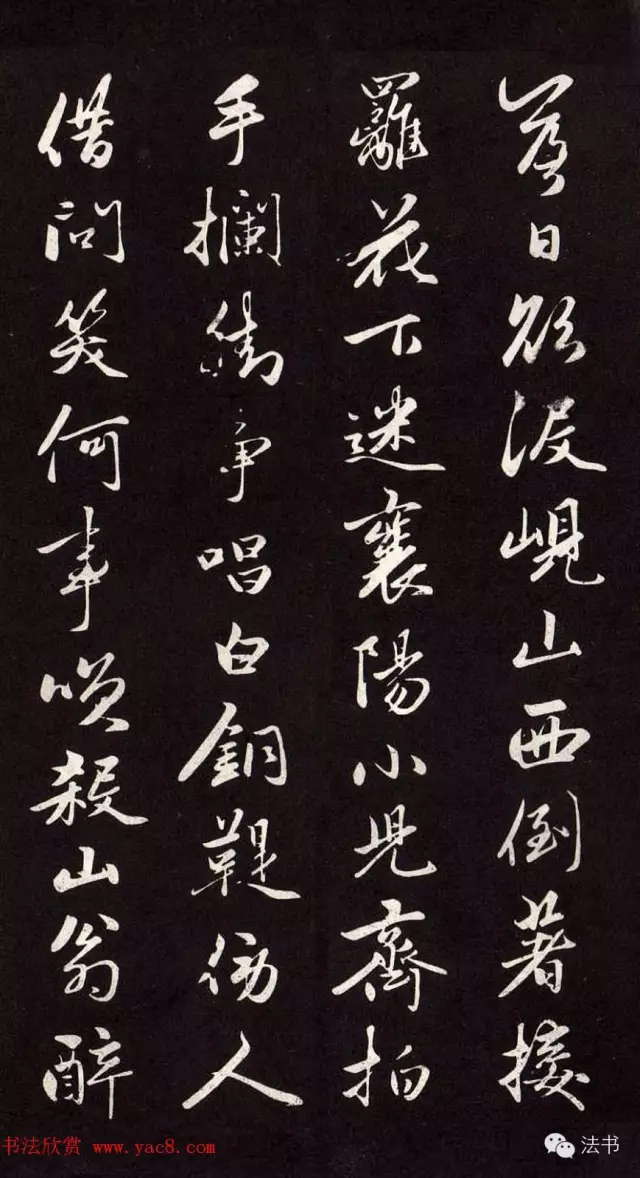 落日欲沒峴山西倒著接
䍦花下迷襄陽小兒齊拍
手攔街爭唱白銅鞮傍人
借問笑何事咲殺山翁醉
书法欣赏 www.yac8.com
法书